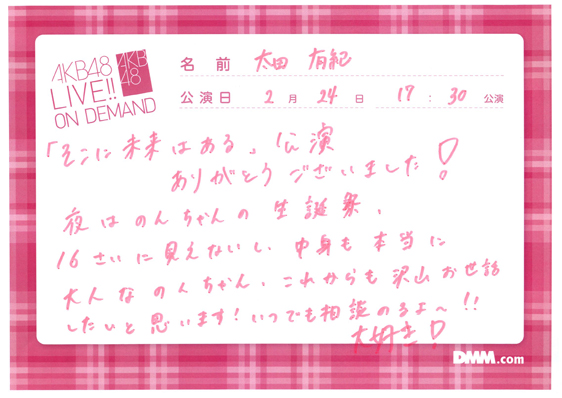 AKB48
LIVE!!
ON DEMAND
AKB
48
名前 太田 有紀
公演日 2月 24日 17:30 公演
「そこに未来はある」公演
ありがとうございました!
夜はのんちゃんの生誕祭、
16さいに見えないし、中身も本当に
大人なのんちゃん、これからも沢山お世話
したいと思います!いつでも相談のるよ〜!!
大好き!
DMM.com